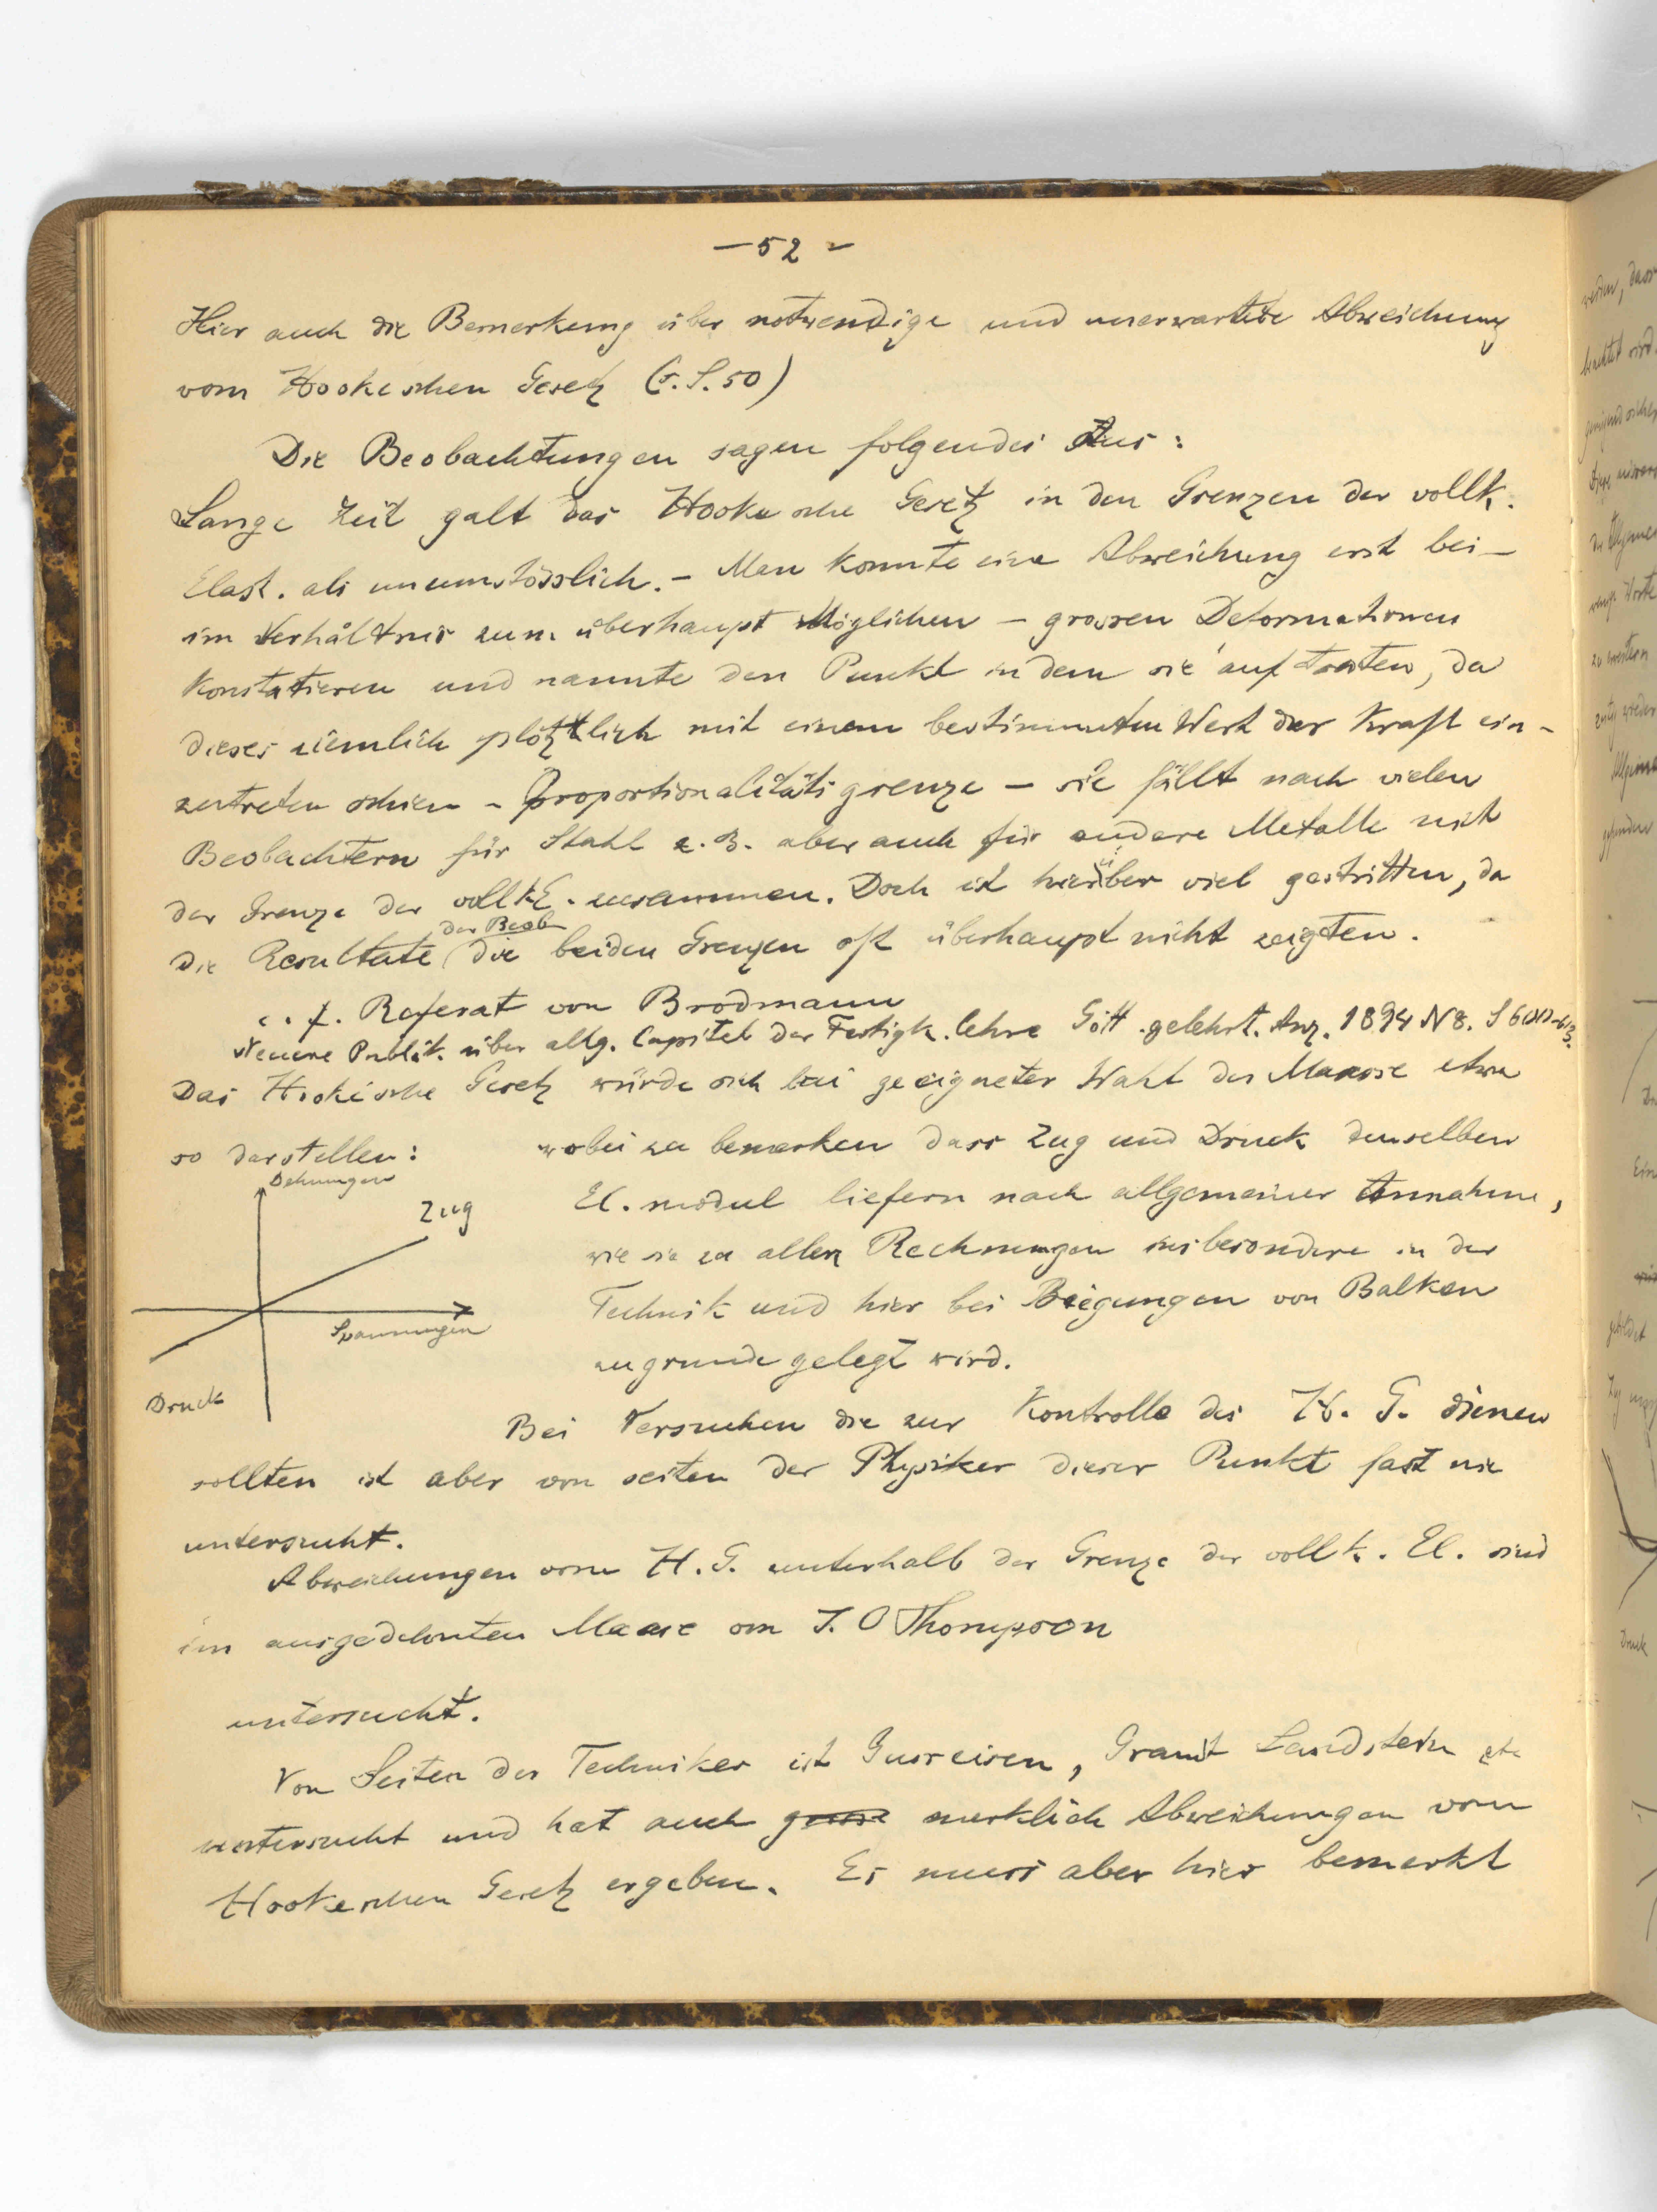 — 52 —
Hier auch die Bemerkung über notwendige und unerwartete Abweichung
vom Hookeschen Gesetz (s. S. 50)
Die Beobachtungen sagen folgendes Aus:
Lange Zeit galt das Hookesche Gesetz in den Grenzen der vollk.
Elast. als unumstösslich. – Man konnte eine Abweichung erst bei –
im Verhältnis zum überhaupt Möglichen – grossen Deformationen
konstatieren und nannte den Punkt in dem sie auftraten, da
dieses ziemlich plötzlich mit einem bestimmten Wert der Kraft ein-
zutreten schien – Proportionalitätsgrenze – sie fällt nach vielen
Beobachtern für Stahl z. B. aber auch für andere Metalle mit
der Grenze der vollk. E. zusammen. Doch ist hierüber viel gestritten, da
der Beob
die Resultate die beiden Grenzen oft überhaupt nicht zeigten.
c. f. Referat von Brodmann
Neuere Publik. über allg. Capitel der Festigk. lehre Gött. gelehrt. Anz. 1894 N 8. S
Das Hookesche Gesetz würde sich bei geeigneter Wahl der Maasse etwa
so darstellen:
Dehnungen
Zug
Spannungen
Druck
wobei zu bemerken dass Zug und Druck denselben
El. modul liefern nach allgemeiner Annahme,
wie sie zu allen Rechnungen insbesondere in der
Technik und hier bei Biegungen von Balken
zugrunde gelegt wird.
Bei Versuchen die zur Kontrolle des H. G. dienen
sollten ist aber von seiten der Physiker dieser Punkt fast nie
untersucht.
Abweichungen vom H. G. unterhalb der Grenze der vollk. El. sind
im ausgedehnten Maasse von J. O Thompson
untersucht.
Von Seiten der Techniker ist Gusseisen, Granit Sandstein etc
untersucht und hat auch grosse merklich Abweichungen vom
Hookeschen Gesetz ergeben. Es muss aber hier bemerkt